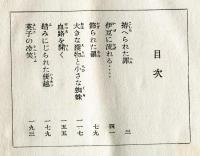 目次
捕へられた罪 三
伊豆に流れる…… 四一
飾られた餌 七九
大きな獲物と小さな蜘蛛 一一七
血路を開く 一五五
踏みにじられた優越 一七九
葉子の冷笑 一九三